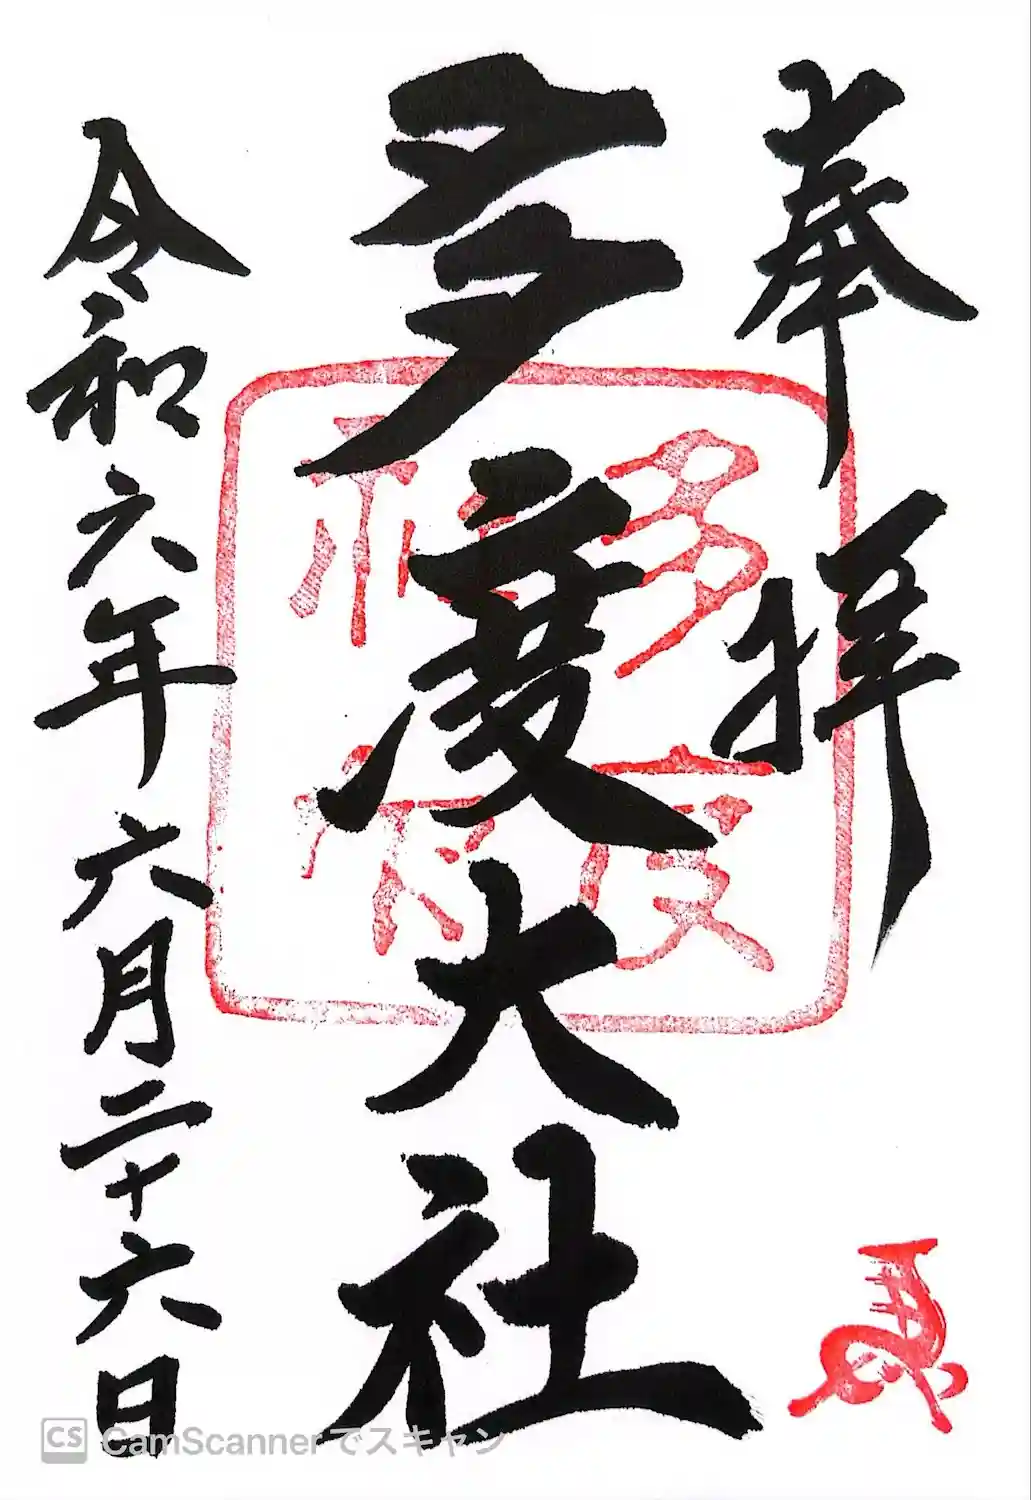 奉拝
多度大社
令和六年六月二十六日
CS CamScannerでスキャン